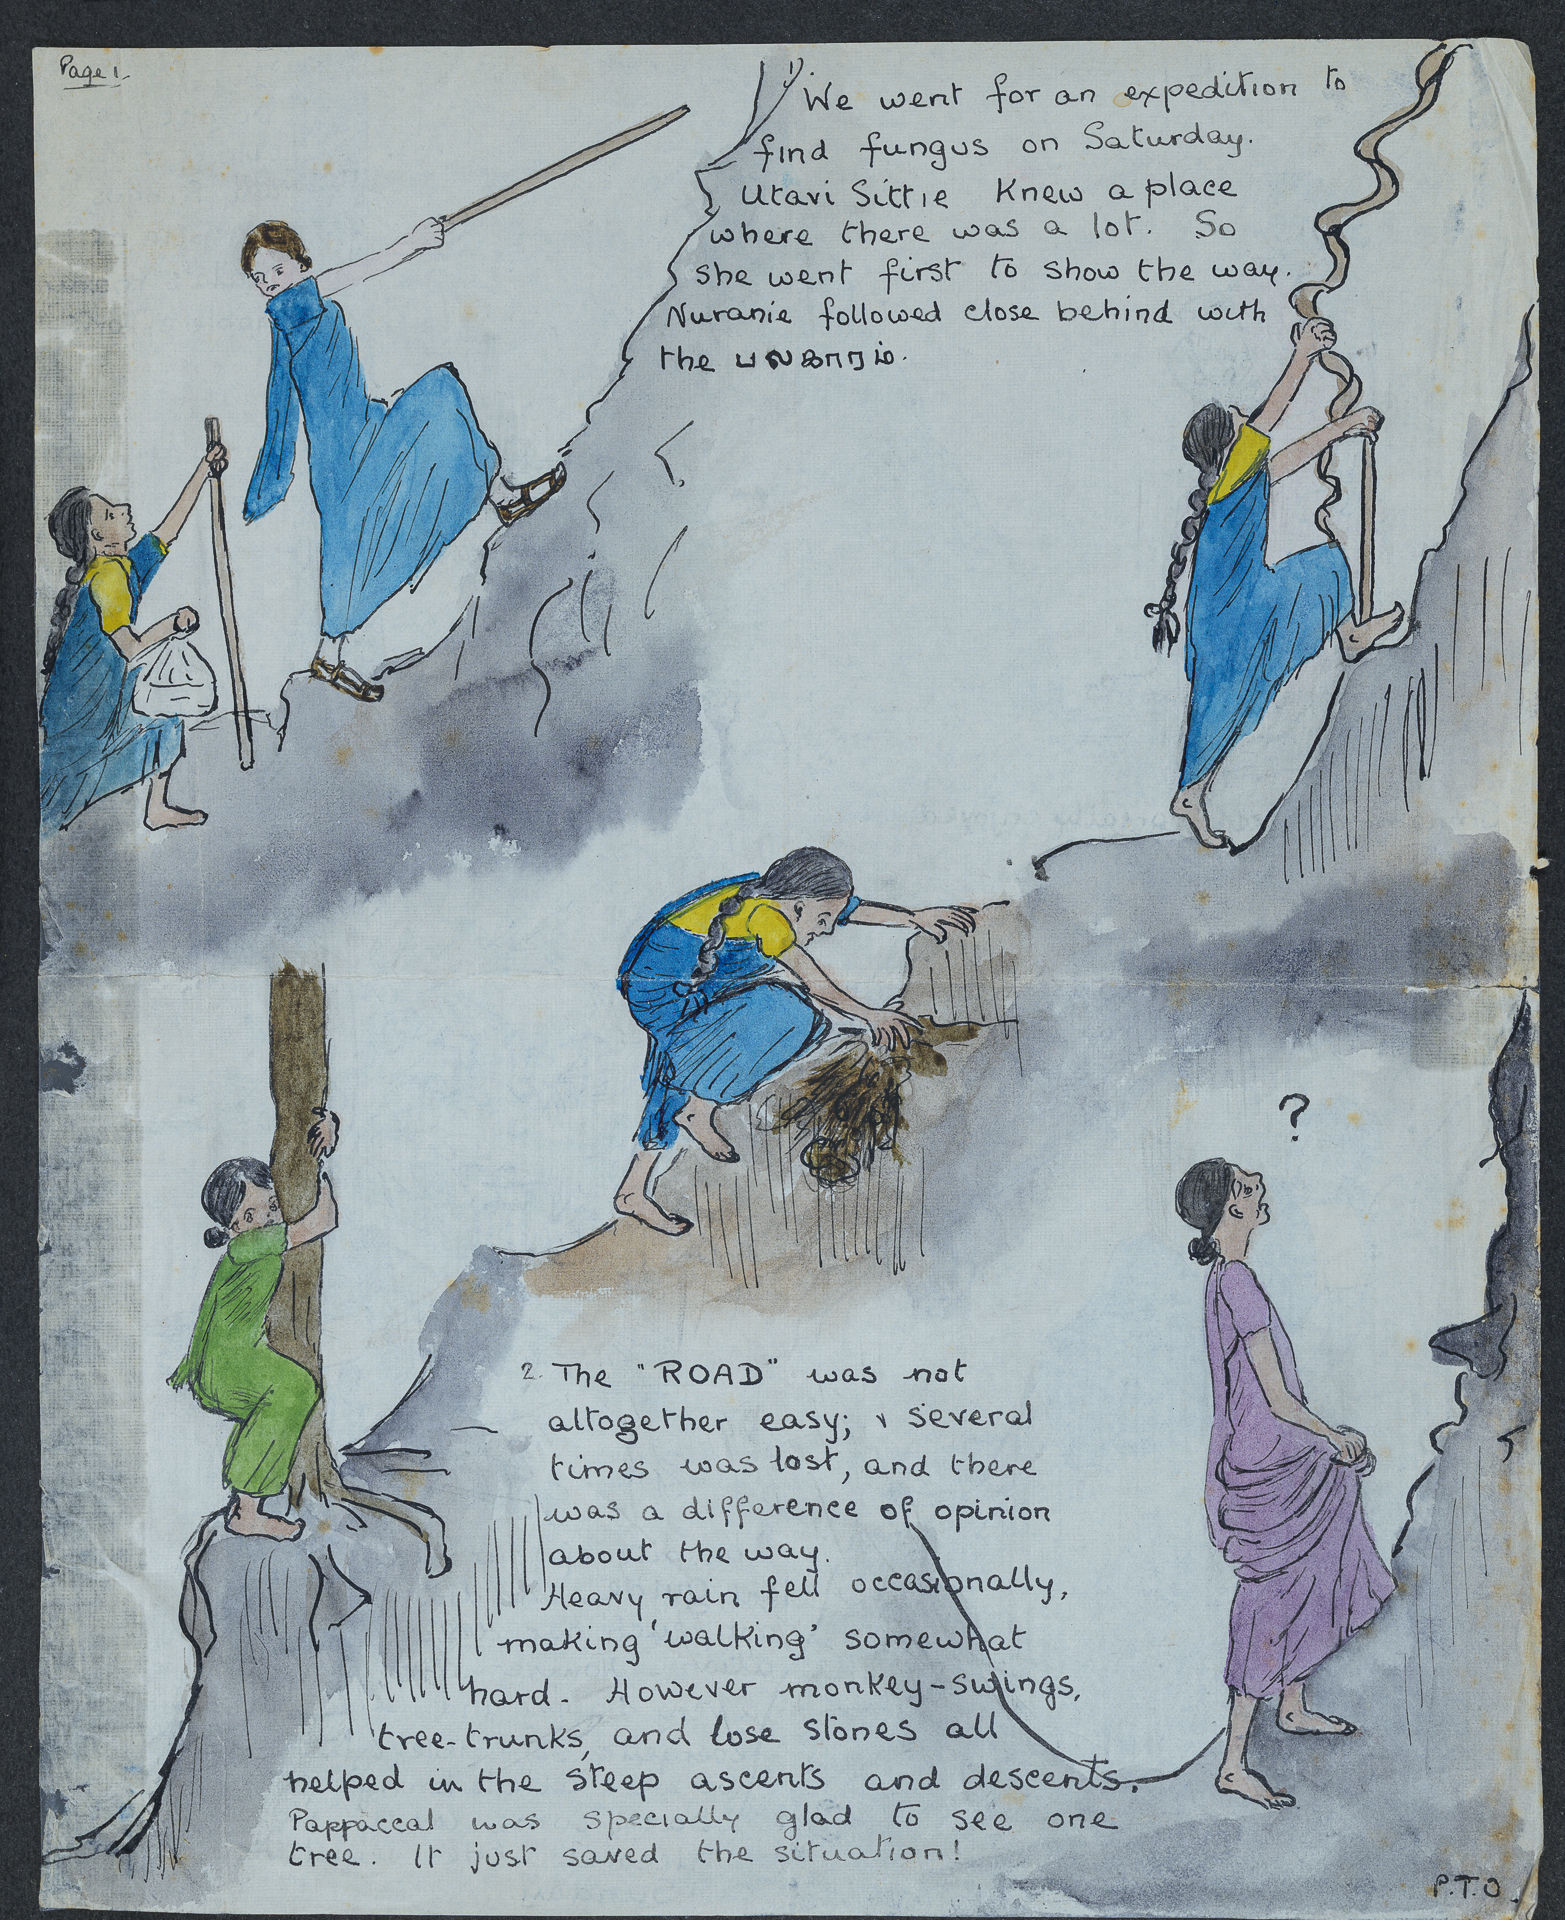 Page 1.
1) We went for an expedition to
find fungus on Saturday.
Utavi Sittie Knew a place
where there was a lot. So
she went first to show the way.
Nuranie followed close behind with
the பலகாரம்.
?
2. The "ROAD" was not
altogether easy; & several
times was lost, and there
was a difference of opinion
about the way.
Heavy rain fell occasionally,
making 'walking' somewhat
hard. However monkey-swings,
tree-trunks, and lose stones all
helped in the steep ascents and descents.
Pappaccal was specially glad to see one
tree. It just saved the situation!
P.T.O.